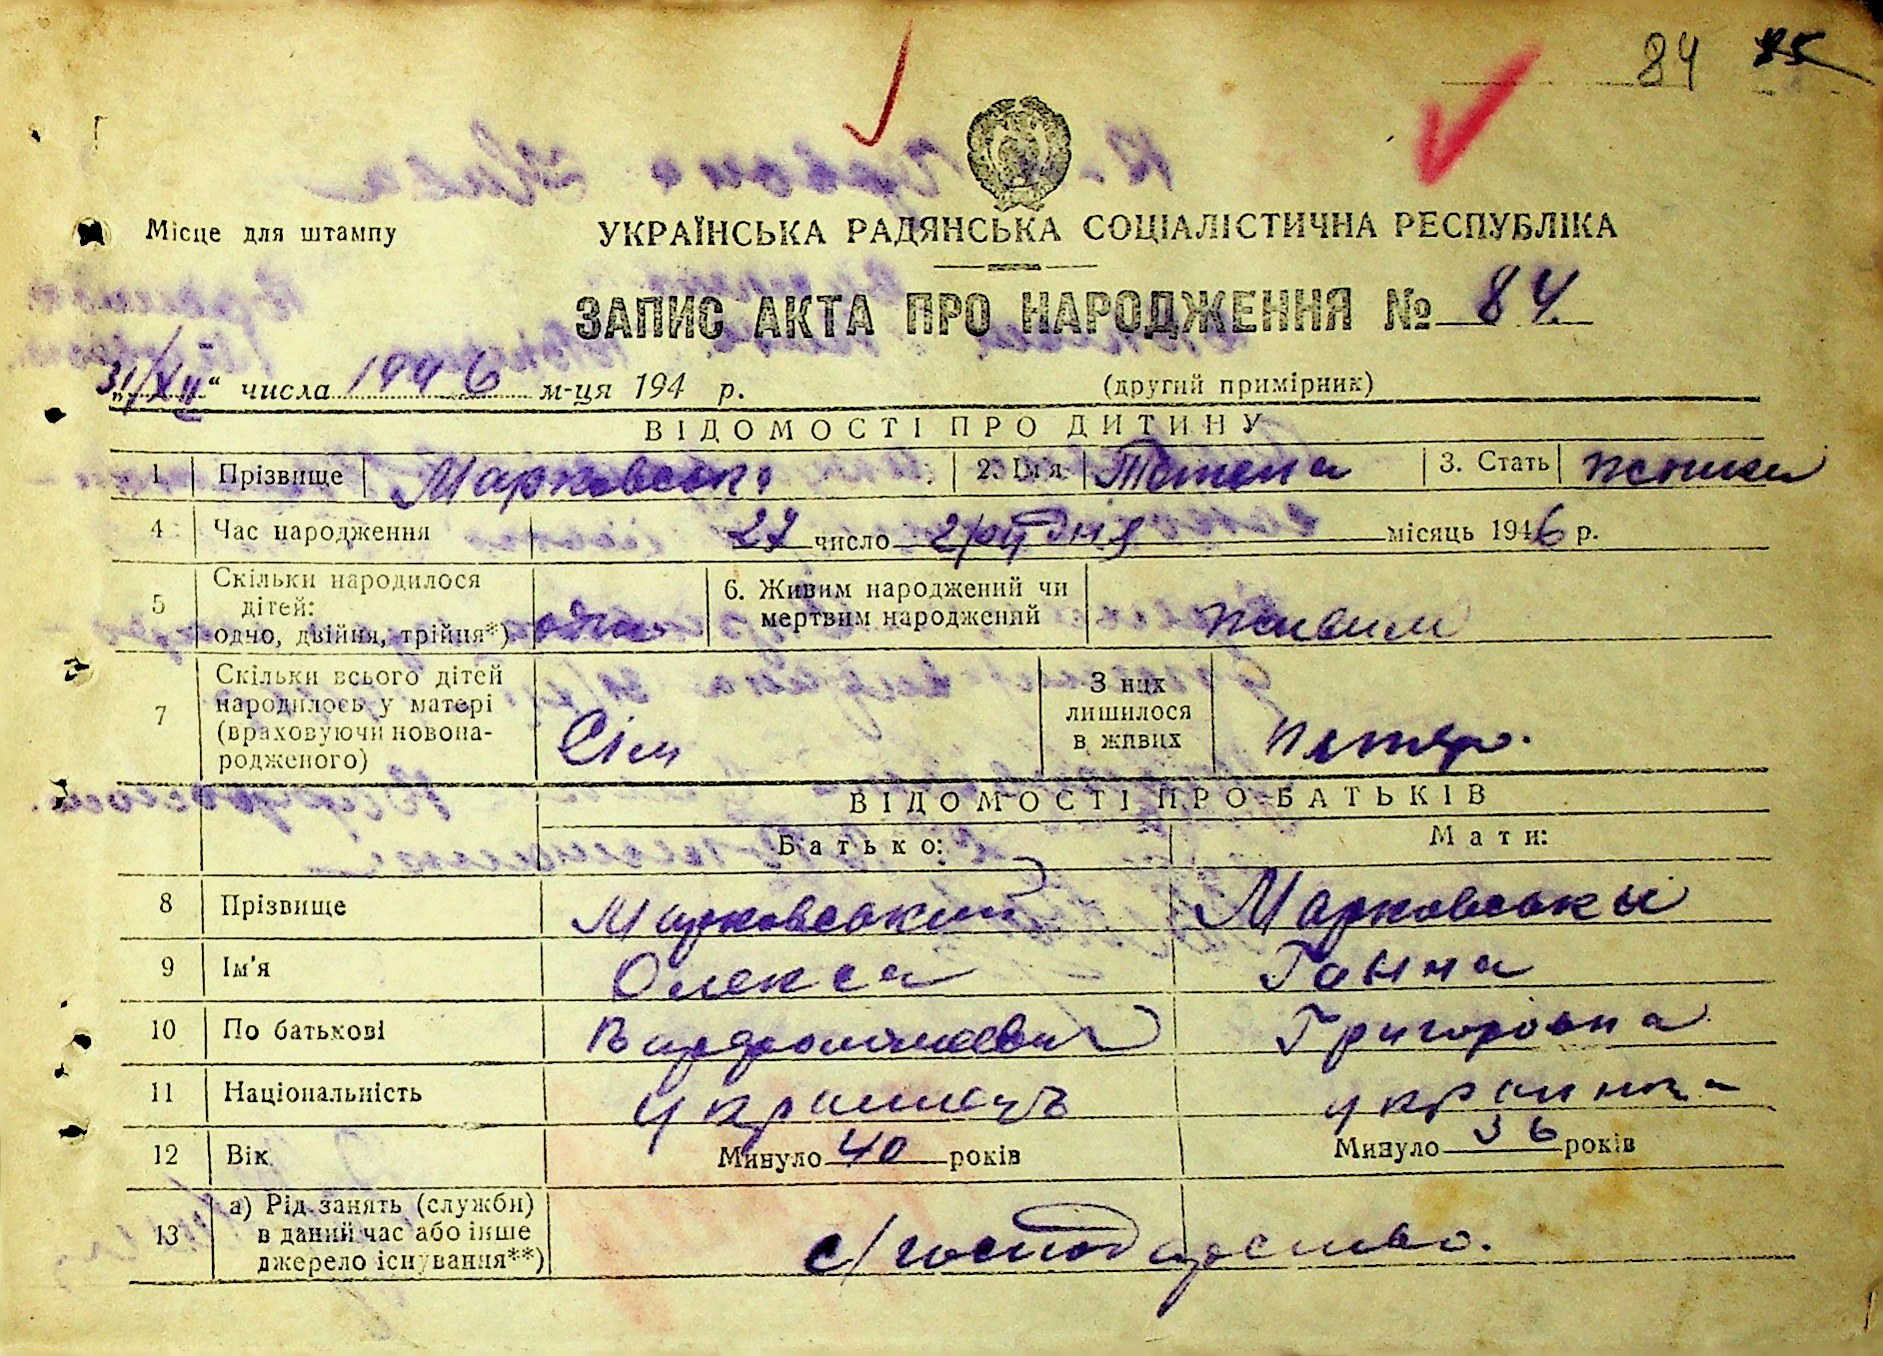 84 85
Місце для штампу
УКРАЇНСЬКА РАДЯНСЬКА СОЦІАЛІСТИЧНА РЕСПУБЛІКА
ЗАПИС АКТА ПРО НАРОДЖЕННЯ № 84
„31/XII“ числа 1946 м-ця 194 р. (другий примірник)
ВІДОМОСТІ ПРО ДИТИНУ
1 Прізвище 2. Ім'я 3. Стать
4 Час народження 27 число грудня місяць 1946 р.
5 Скільки народилося
дітей:
одно, двійня, трійня*) одно
6. Живим народжений чи
мертвим народжений живим
7 Скільки всього дітей
народилось у матері
(враховуючи новона-
родженого) Сім
З них
лишилося
в живих
ВІДОМОСТІ ПРО БАТЬКІВ
Батько: Мати:
8 Прізвище Марковський Марковськы
9 Ім'я Олекса Ганна
10 По батькові Григоровна
11 Національність украинка
12 Вік Минуло 40 років Минуло 36 років
13 а) Рід занять (служби)
в даний час або інше
джерело існування**) с/господарство.